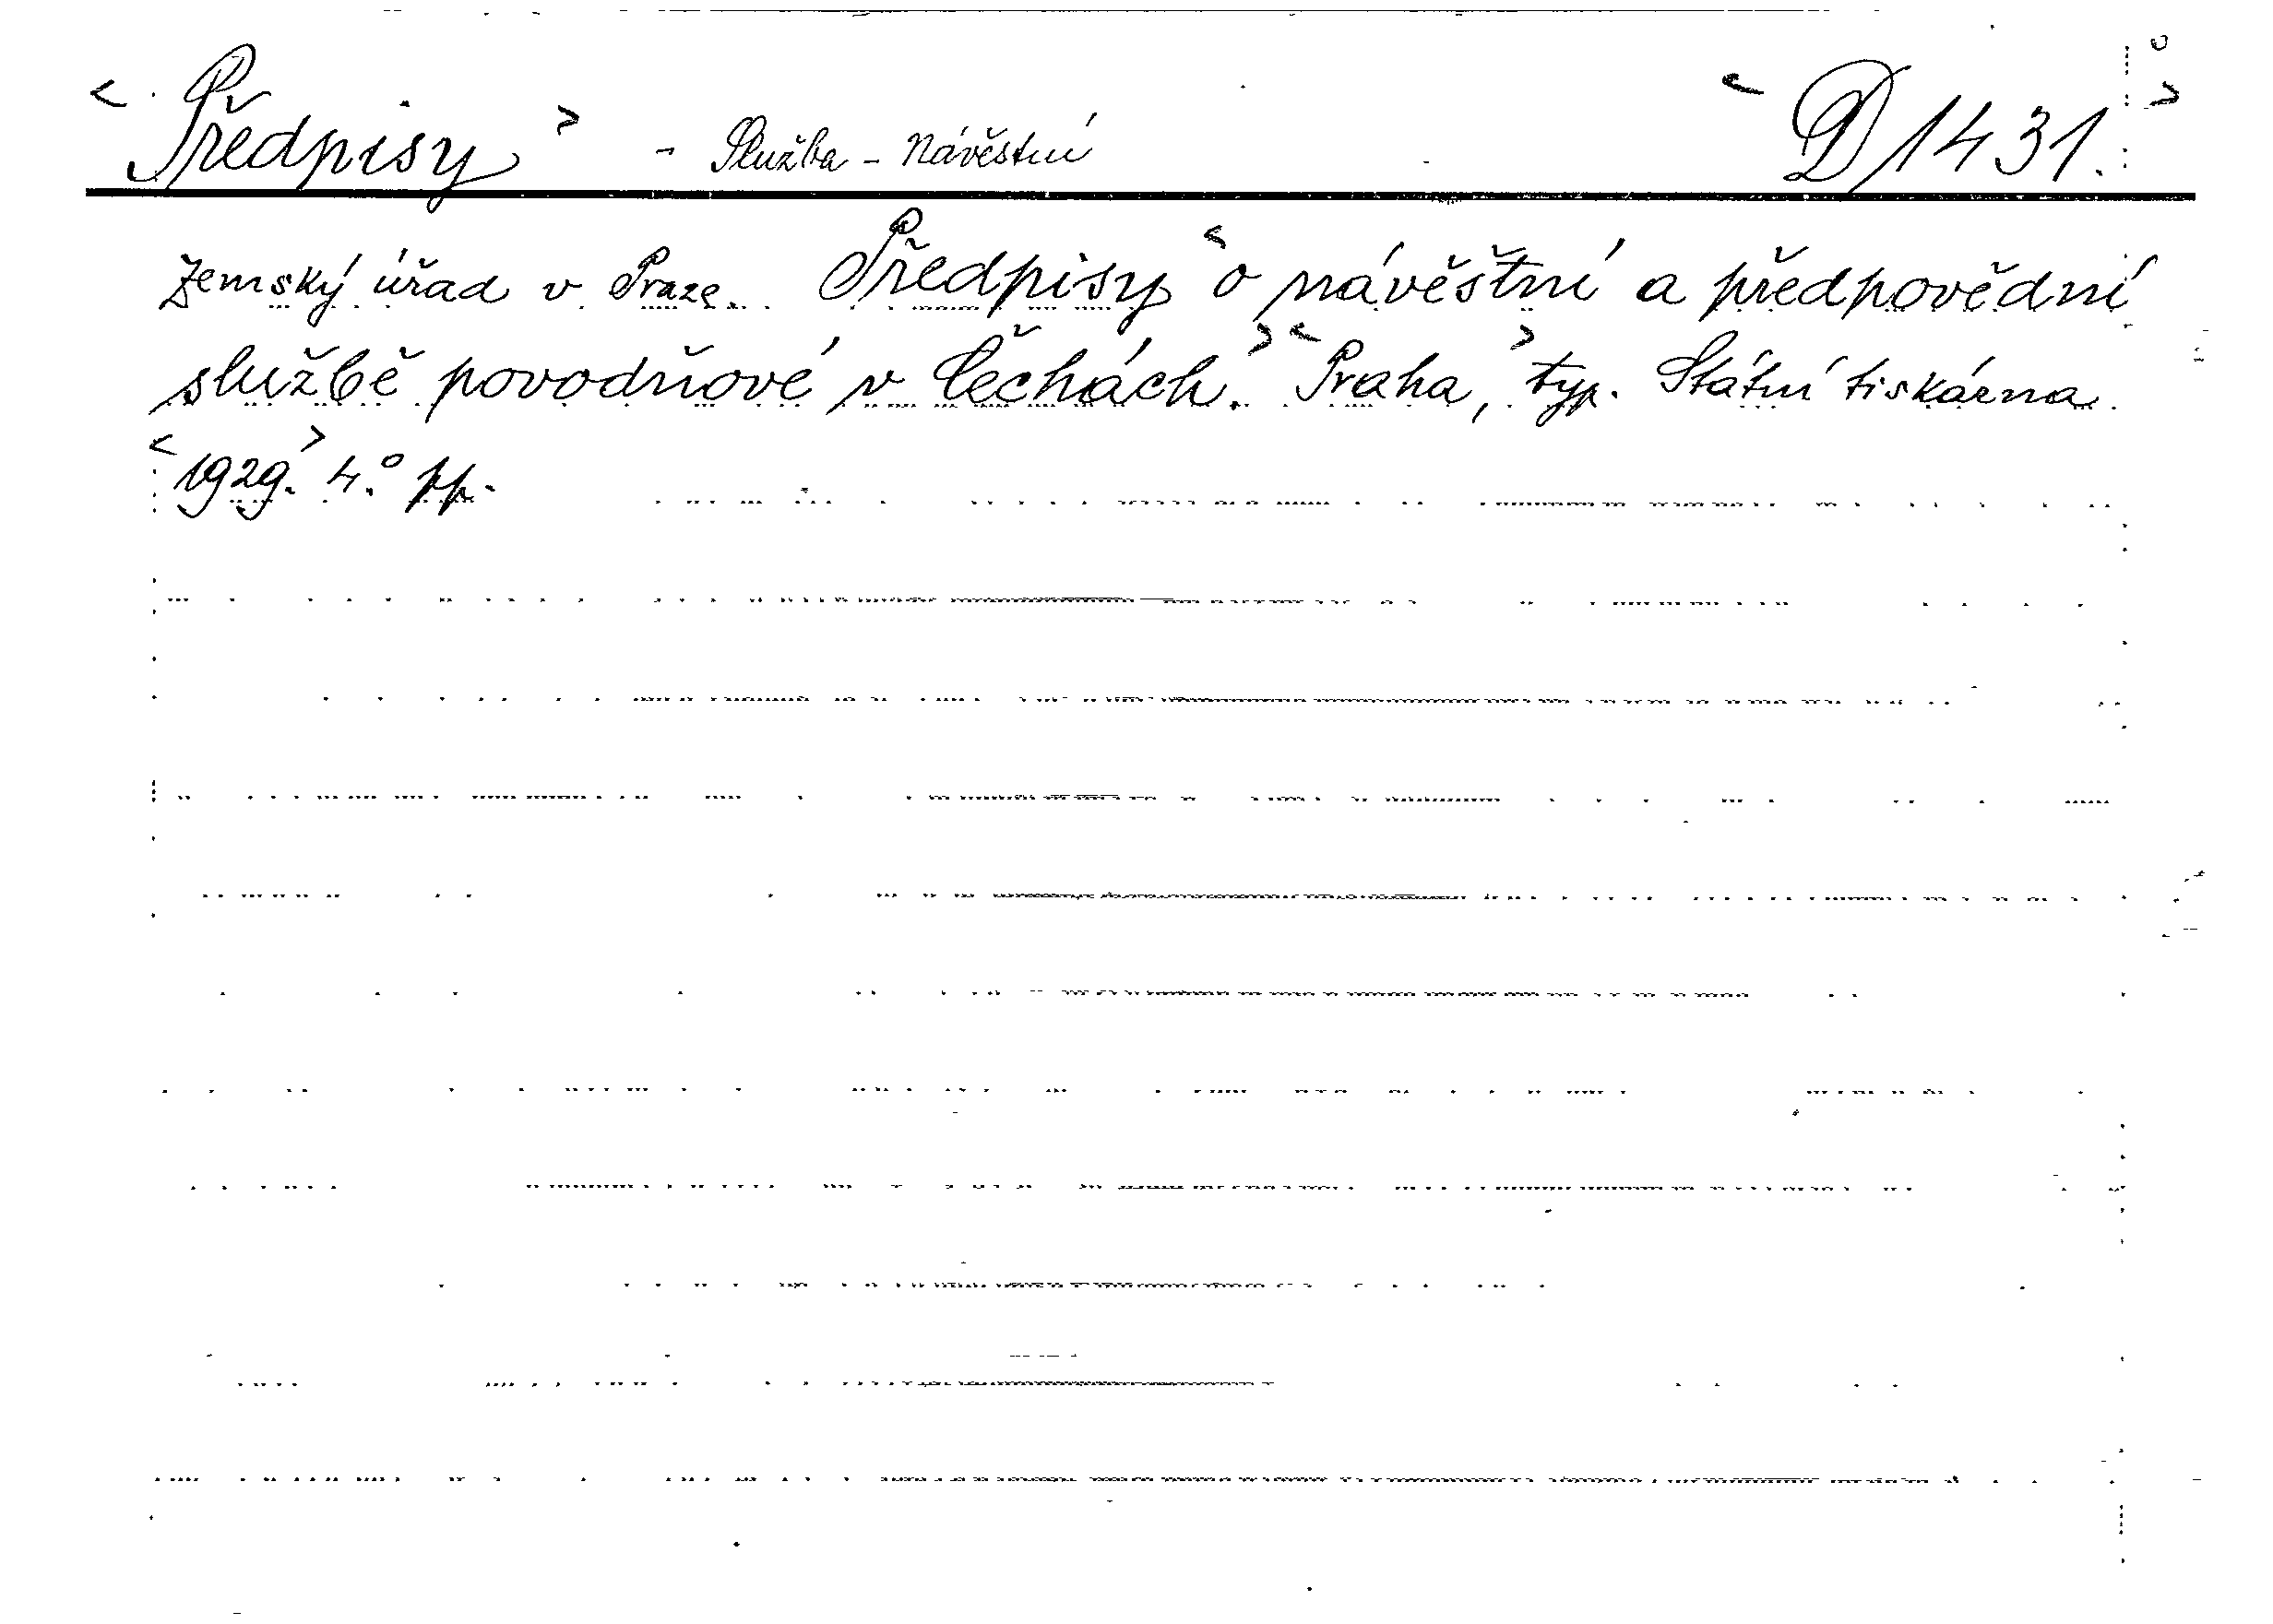 < Předpisy > - Služba - Návěstní < D 1431. >
Zemský úřad v Praze. Předpisy < o návěštní a předpovědní
službě povodňové v Čechách. > < Praha, > typ. Státní tiskárna.
< 1929. > 4.° pp.